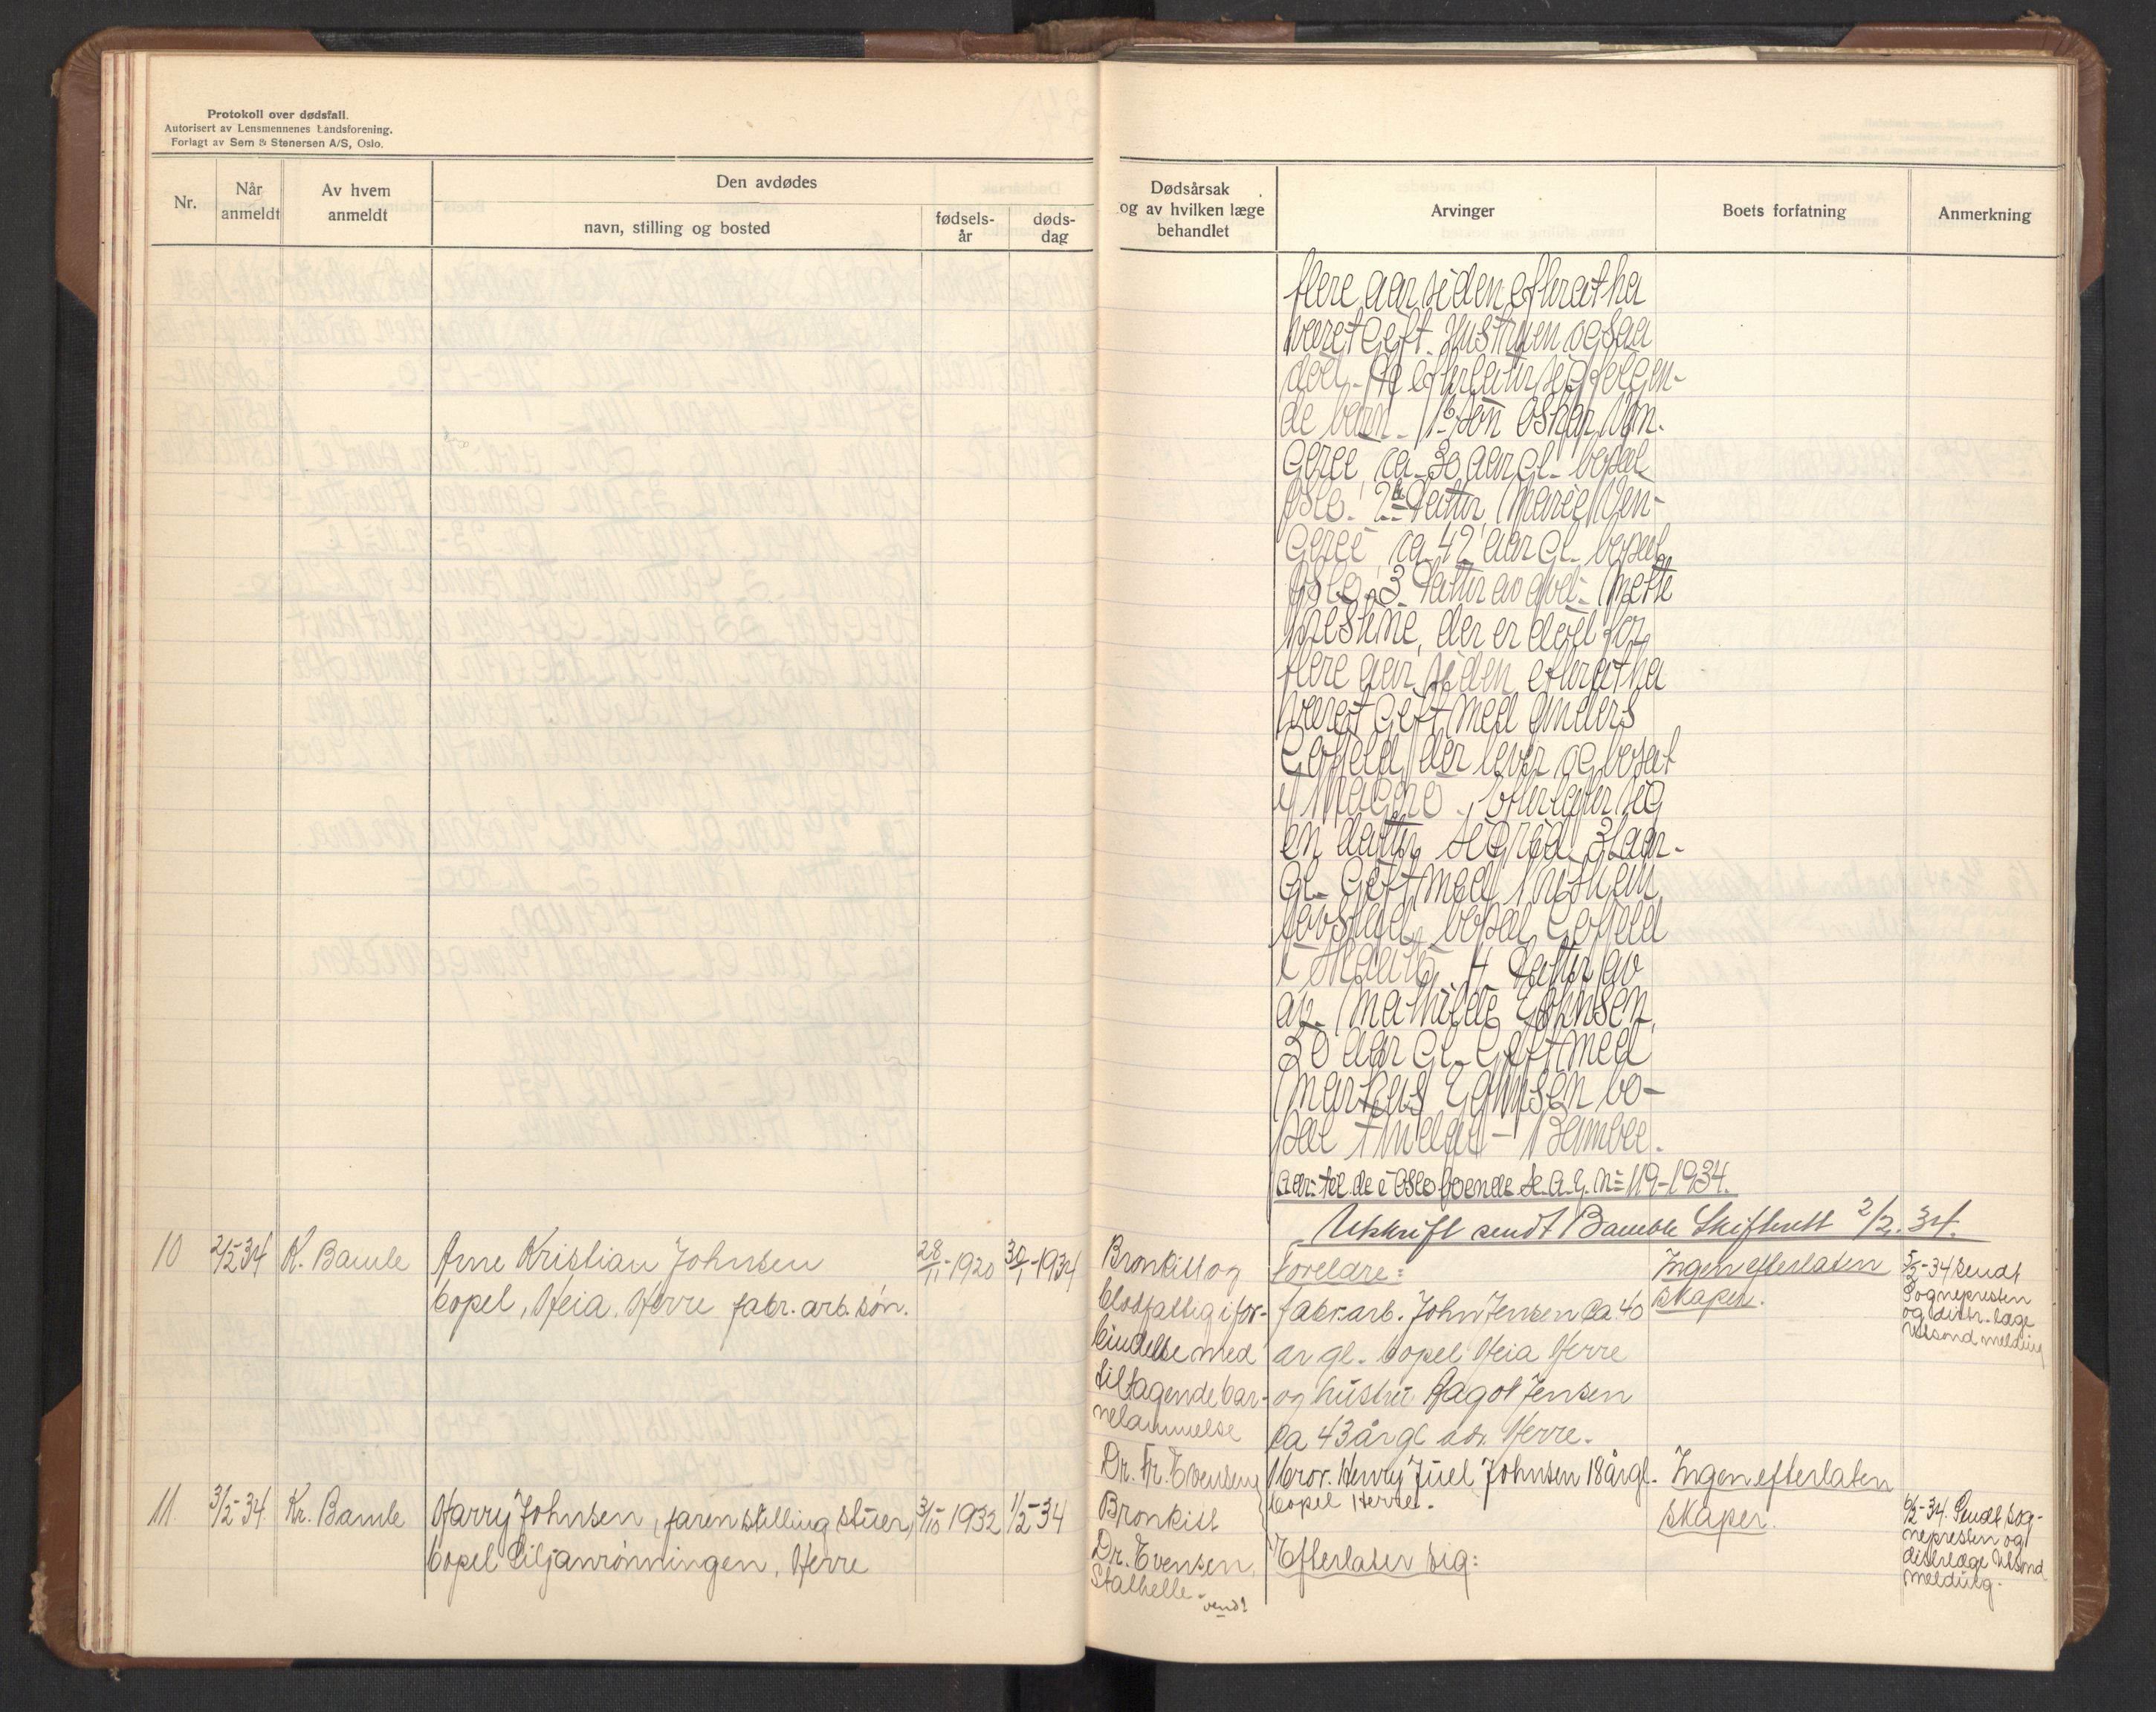 Protokoll over dødsfall.
Autorisert av Lensmennenes Landsforening.
Forlagt av Sem & Stenersen A/S, Oslo.
Nr.
Når anmeldt
Av hvem anmeldt
Den avdødes
navn, stilling og bosted
fødsels-år
døds-dag
Dødsårsak og av hvilken læge behandlet
Arvinger
Boets forfatning
Anmerkning
flere aar siden efterat ha
været gift. Hustruen ogsaa
død. De efterlater sig følgen-
de barn. 1. Søn Oskar
ca. 30 aar gl. bosat
Oslo. 2. Datter Marie
ca. 42 aar gl. bosat
Oslo. 3. Datter av avd. Mette
der er død for
flere aar siden efterat ha
været gift med Anders
der lever og bosat
i efterlater sig
en datter Sigrid 31 aar
gl. gift med
bosat
i 4. Datter av
av. Mathilde Johnsen
30 aar gl. gift med
Markus Johnsen bo-
sat Bamble.
til de i Oslo boende se A. J. No 119-1934.
Utskrift sendt Bamble Skifterett 2/2. 34.
10
2/2 34
K. Bamle
Arne Kristian Johnsen
bopel, Heia, Herre fabr. arb. søn.
28/11-1920
30/1-1934
Bronkitt og
blodfattig i for-
bindelse med
tiltagende bar-
nelammelse
Dr. Fr. Evensen
Foreldre:
fabr. arb. John Jensen ca. 40
år gl. bopel Heia Herre
og hustru Ragot Jensen
ca 43 år gl adr. Herre.
Bror. Henry Juel Johnsen 18 år gl.
bopel Herre.
Ingen efterlaten
skaper.
5/2-34 sendt
Sognepresten
og distr. læge
melding
11.
3/2-34
Kr. Bamle
Harry Johnsen, faren stilling stuer,
bopel Siljanrønningen, Herre
3/10 1932
1/2-34
Bronkitt
Dr. Evensen,
Stathelle.
vend!
Efterlater sig:
Ingen efterlaten
skaper.
6/2-34. Sendt sog-
nepresten og
distrlæge
melding.